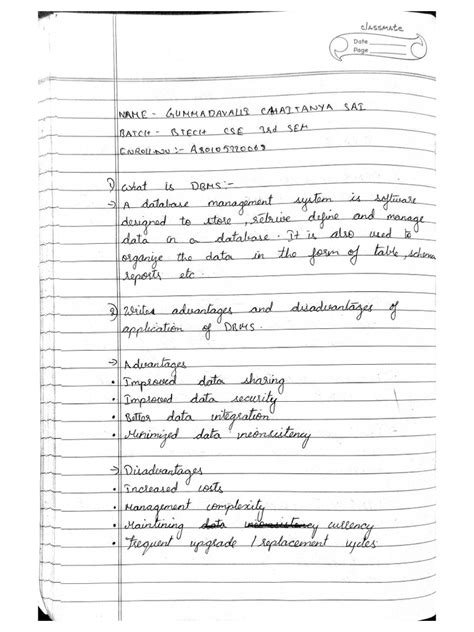 classmate
Date
Page
NAME - GUMMADAVALLI CHAITANYA SAI
BATCH - BTECH CSE 3rd SEM
ENROLL NO :- A80105220069
1) What is DBMS:-
→ A database management system is software
designed to store, retrive define and manage
data in a database. It is also used to
organize the data in the form of table, schema
reports etc.
2) Writes advantages and disadvantages of
application of DBMS.
→ Advantages
• Improved data sharing
• Improved data security
• Better data integration
• Minimized data inconsistency
→ Disadvantages
• Increased costs
• Management complexity
• Maintining data inconsistency currency
• Frequent upgrade / replacement cycles